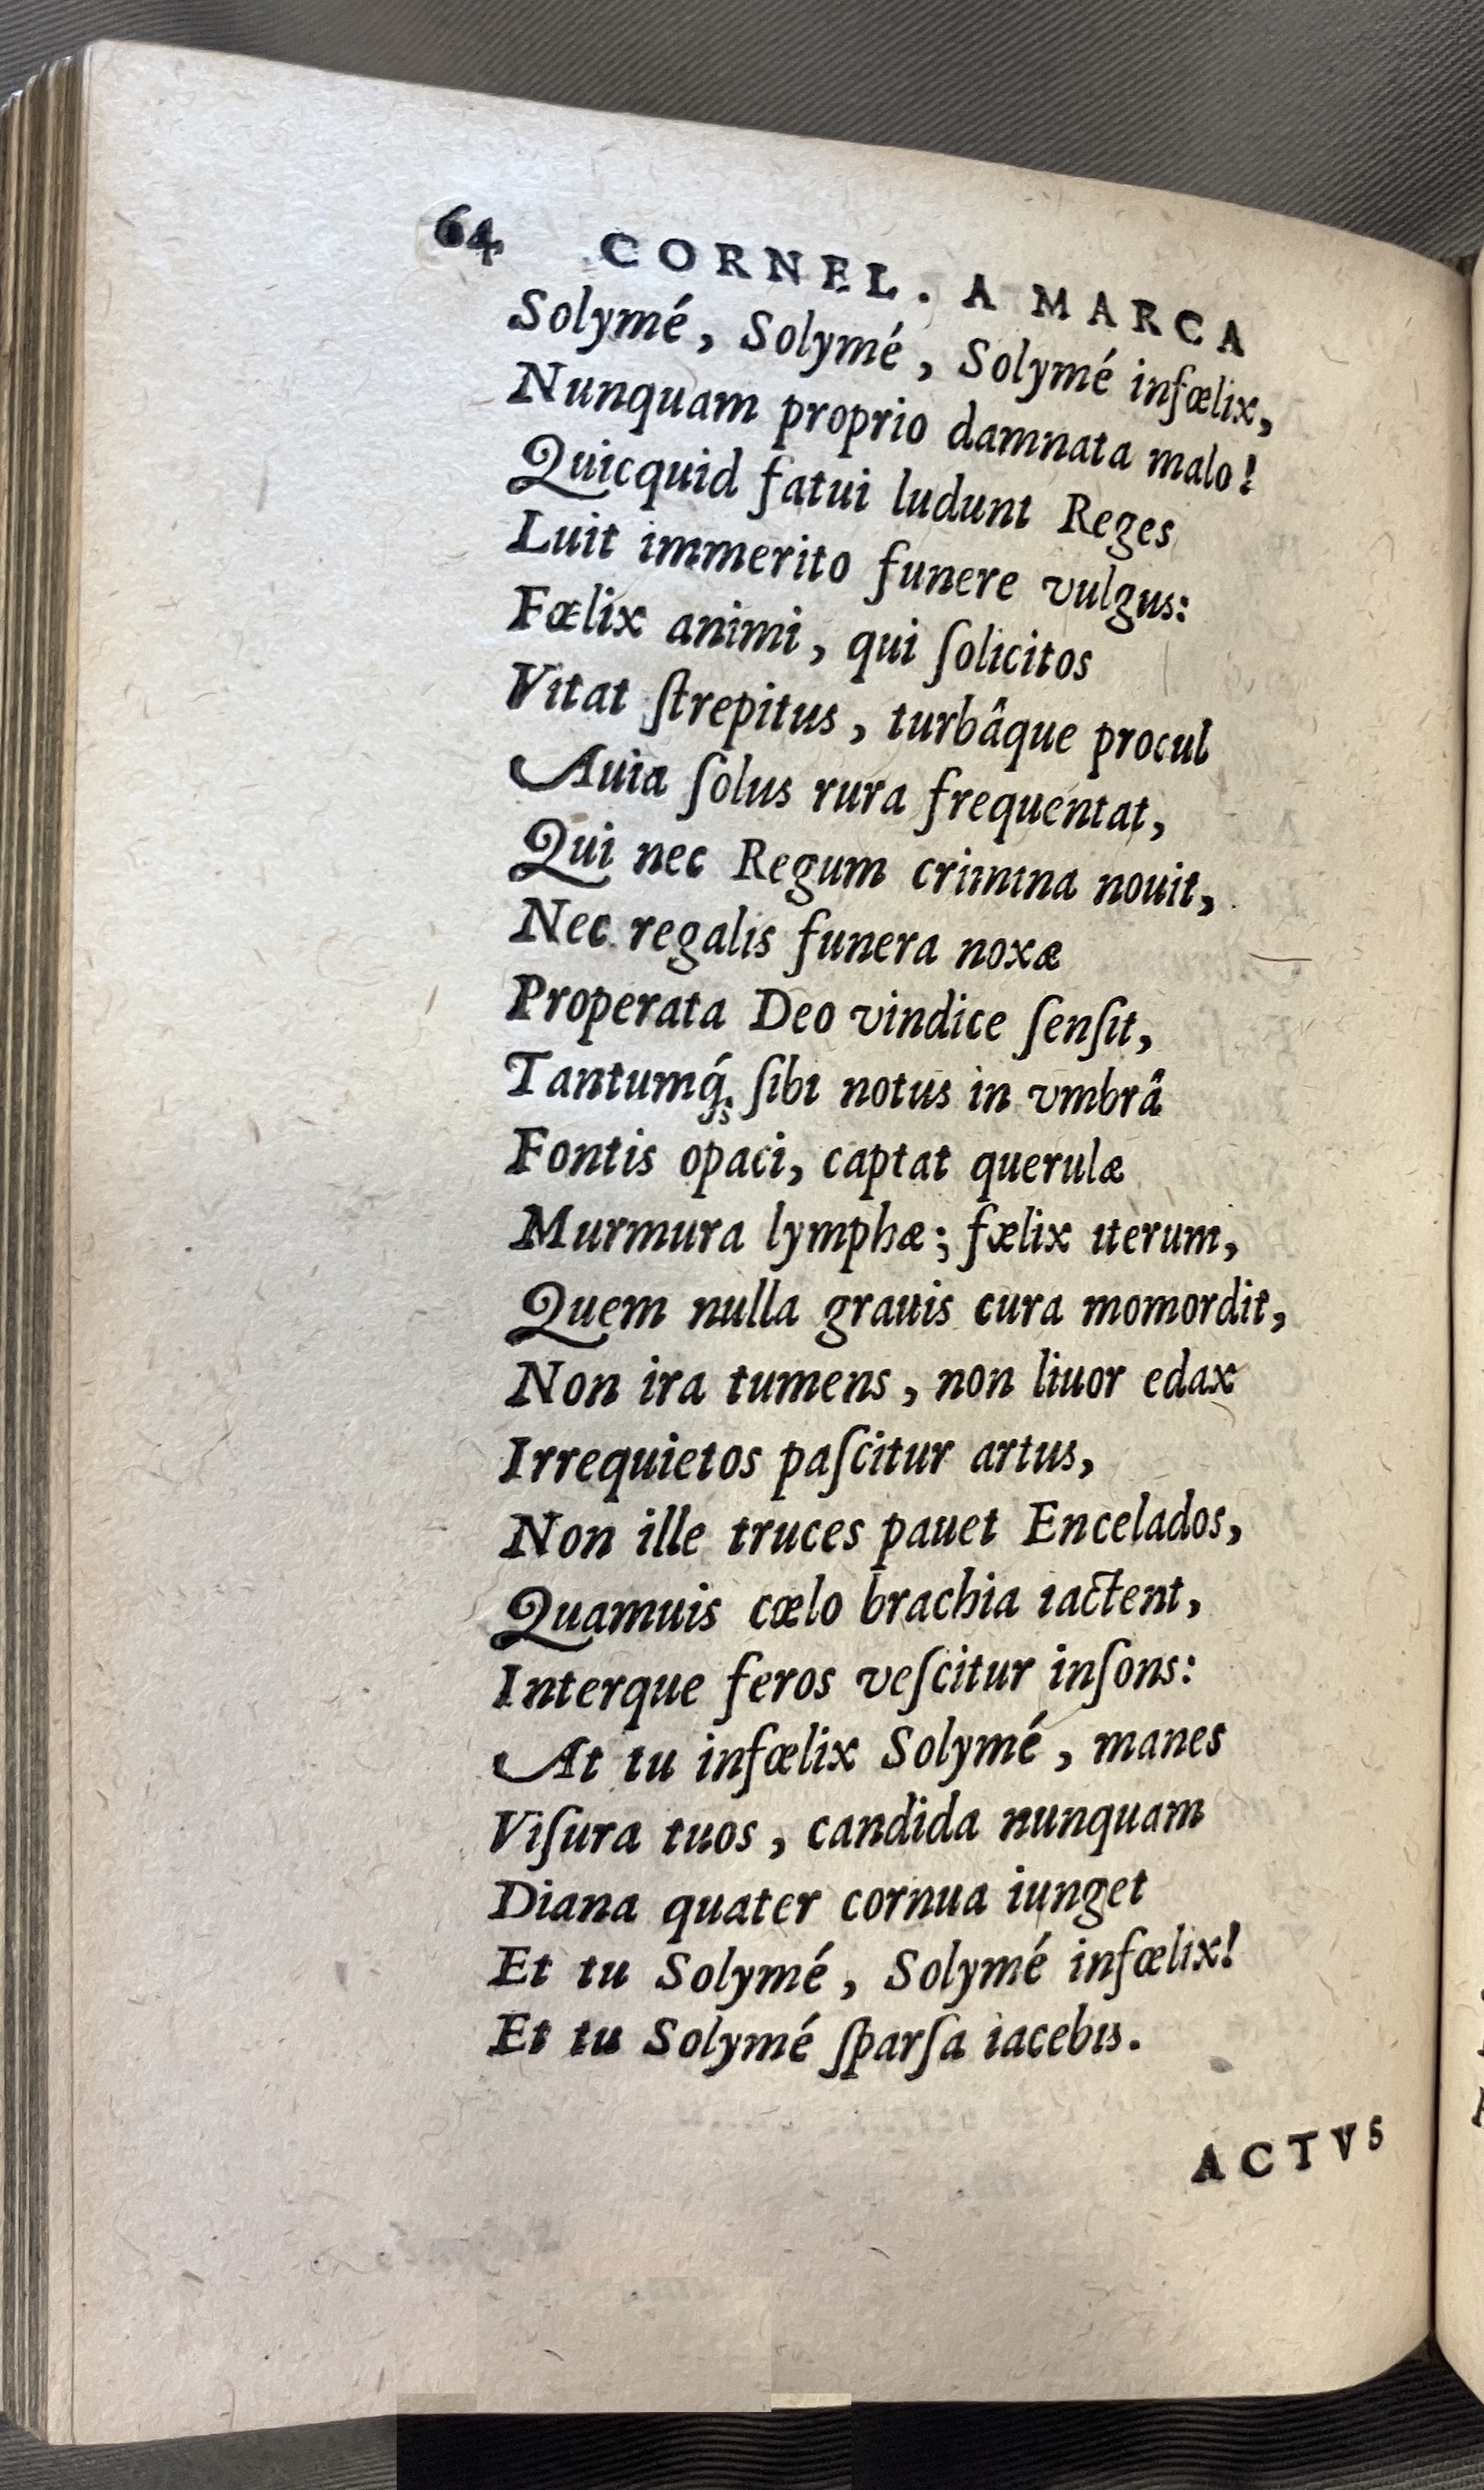 64 CORNEL. A MARCA
Solymé, Solymé, Solymé infœlix,
Nunquam proprio damnata malo!
Quicquid fatui ludunt Reges
Luit immerito funere vulgus:
Fœlix animi, qui ſolicitos
Vitat ſtrepitus, turbâque procul
Auia ſolus rura frequentat,
Qui nec Regum crimina nouit,
Nec regalis funera noxæ
Properata Deo vindice ſenſit,
Tantumq́; ſibi notus in vmbrâ
Fontis opaci, captat querulæ
Murmura lymphæ; fælix iterum,
Quem nulla grauis cura momordit,
Non ira tumens, non liuor edax
Irrequietos paſcitur artus,
Non ille truces pauet Encelados,
Quamuis cœlo brachia iactent,
Interque feros veſcitur inſons:
At tu infœlix Solymé, manes
Viſura tuos, candida nunquam
Diana quater cornua iunget
Et tu Solymé, Solymé infœlix!
Et tu Solymé ſparſa iacebis.
ACTVS